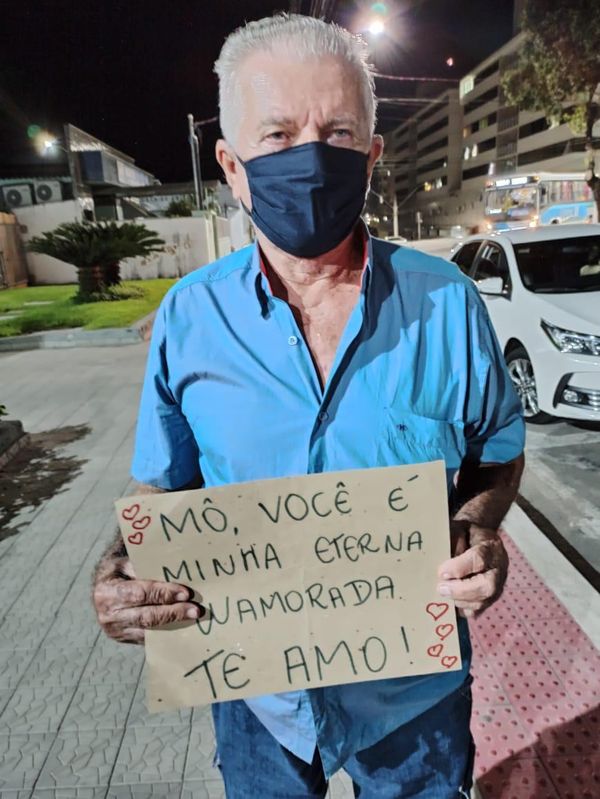 MÔ, VOCÊ É
MINHA ETERNA
NAMORADA
TE AMO!